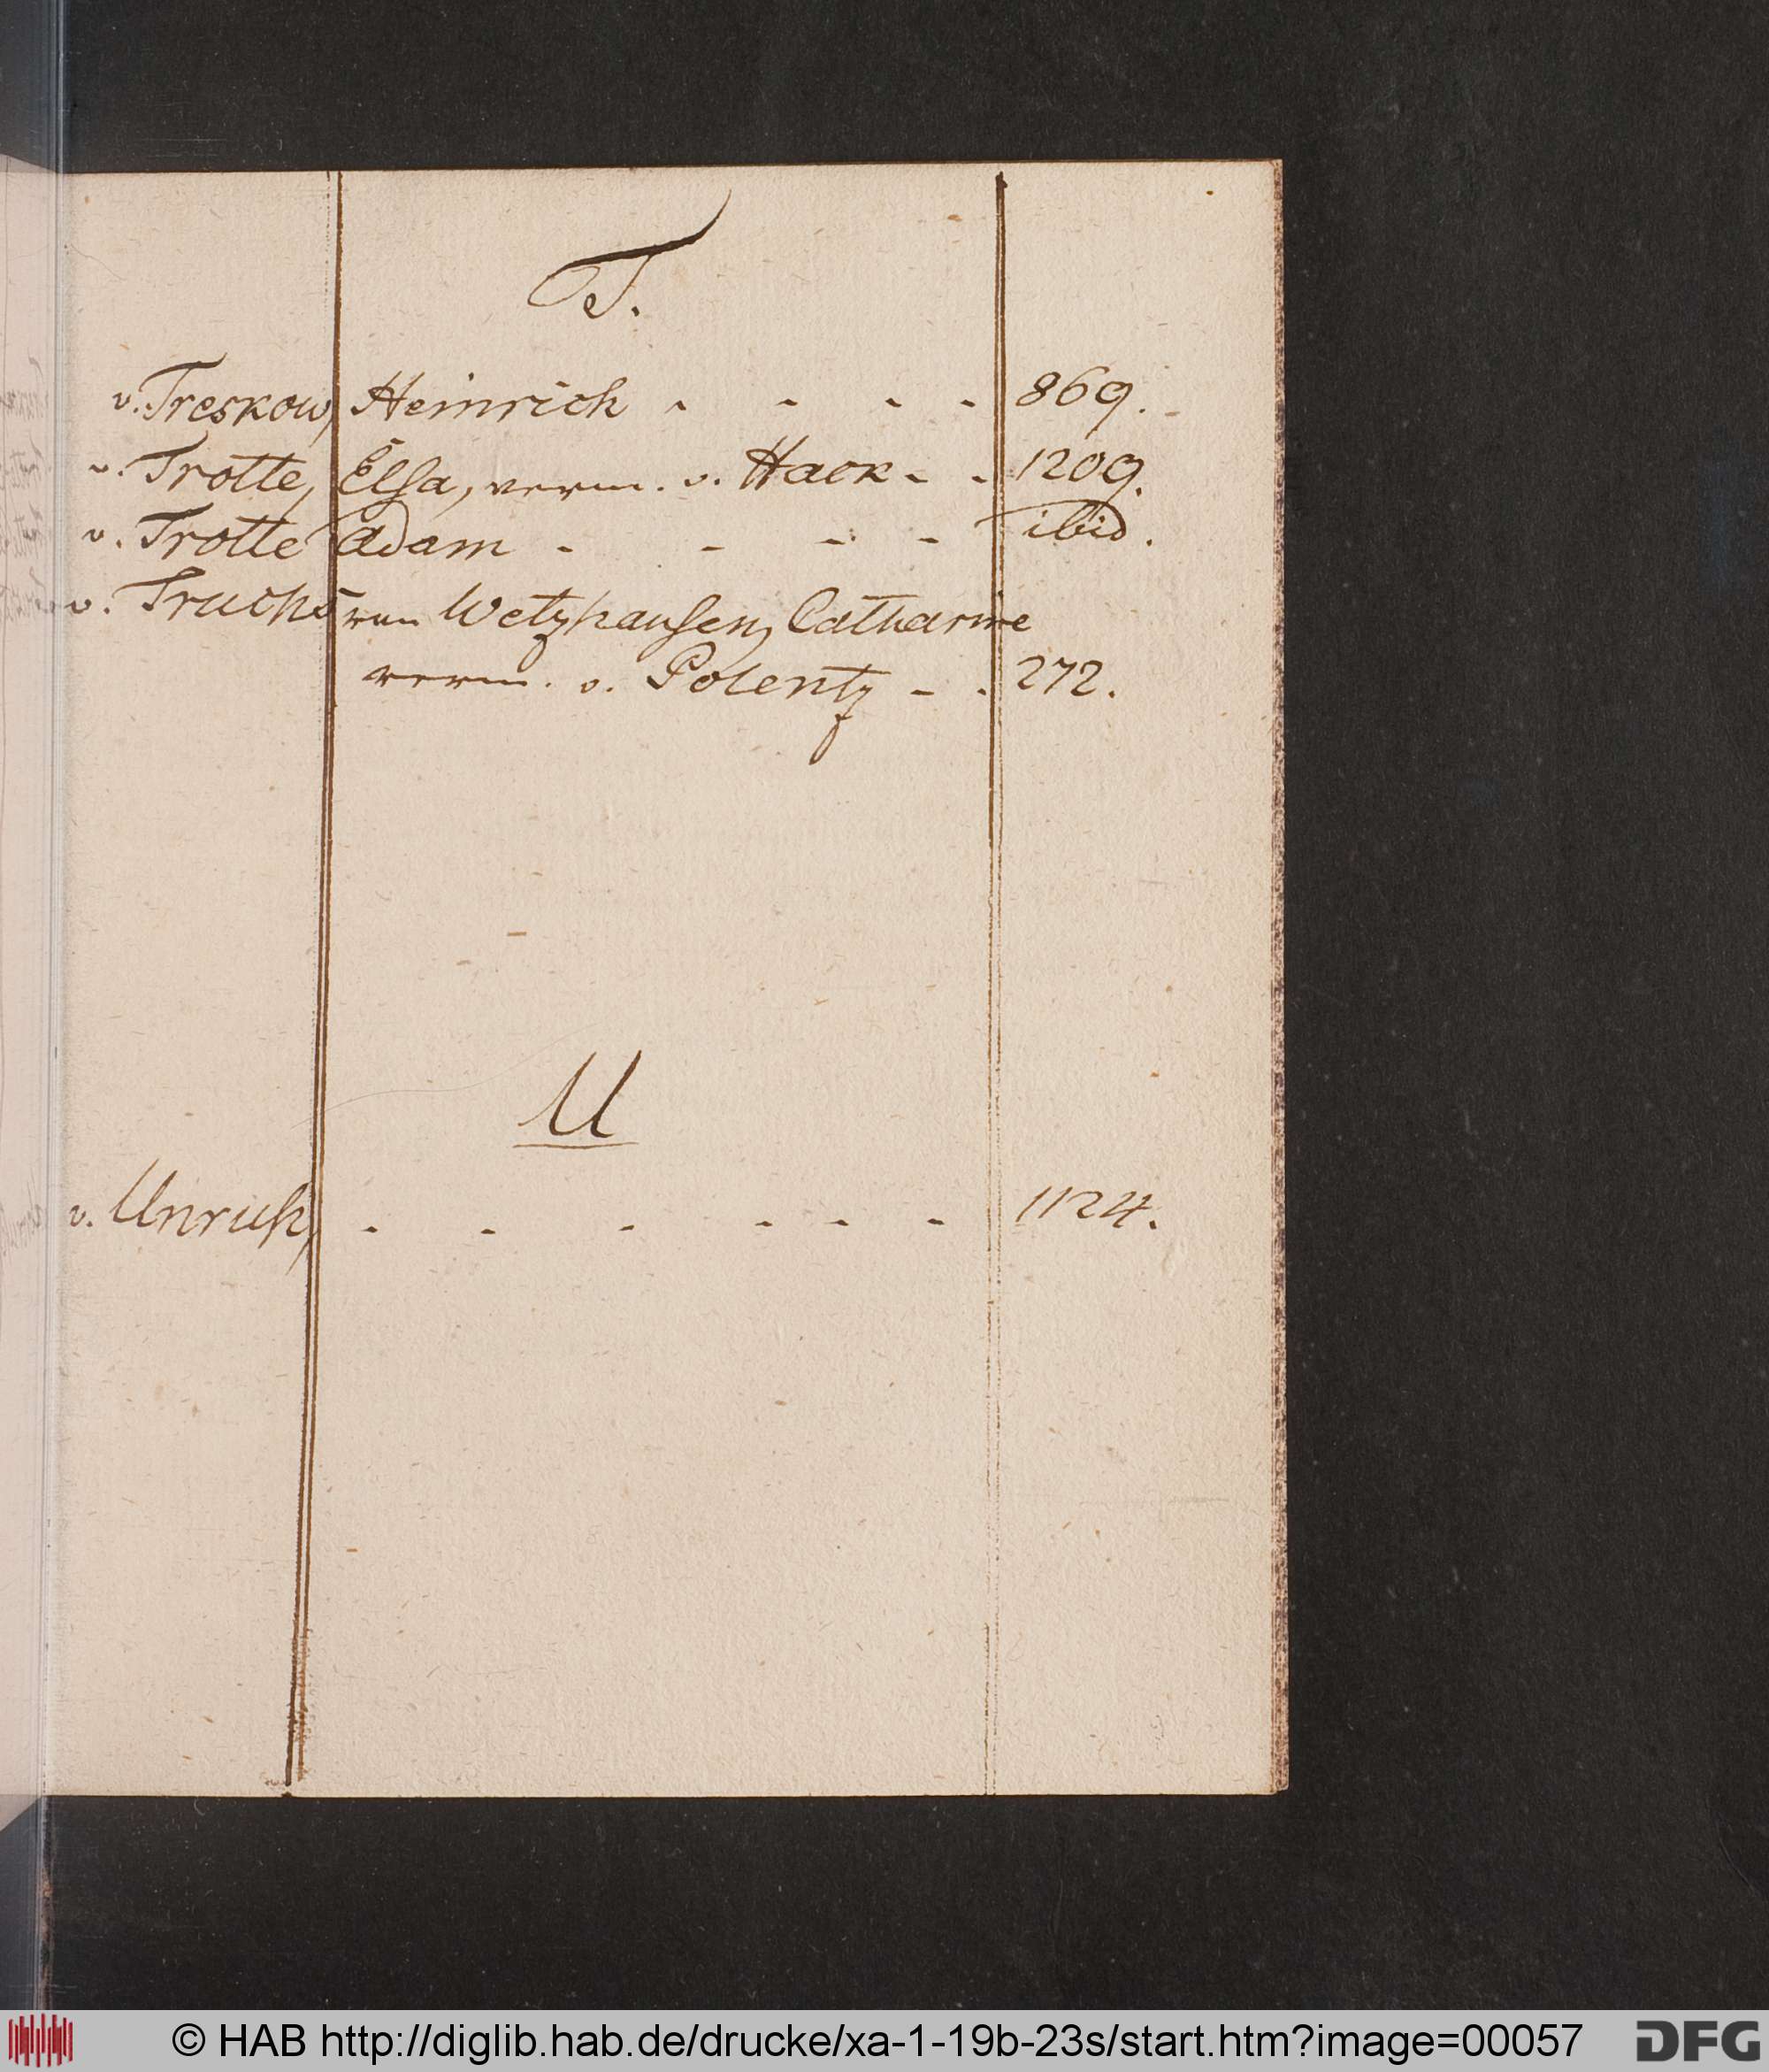 T.
v. Treskow, Heinrich - - - - 869.
v. Trotte, Elsa, verm. v. Hack - - 1209.
v. Trotte Adam - - - - ibid.
v. Truchs von Wetzhausen, Catharine
verm. v. Polentz - - 272.
U
v. Unruh, - - - - - - 1124.
© HAB http://diglib.hab.de/drucke/xa-1-19b-23s/start.htm?image=00057
DFG